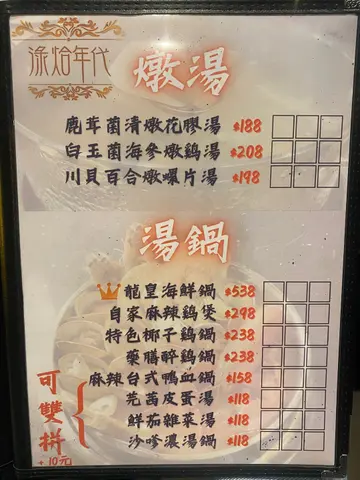 淥焰年代
燉湯
鹿茸菌清燉花膠湯 $188
白玉菌海參燉鷄湯 $208
川貝百合燉螺片湯 $198
湯鍋
龍皇海鮮鍋 $538
自家麻辣鷄煲 $298
特色椰子鷄鍋 $238
藥膳醉鷄鍋 $238
麻辣台式鴨血鍋 $158
芫茜皮蛋湯 $118
鮮茄雜菜湯 $118
沙嗲濃湯鍋 $118
可雙拼
+10元